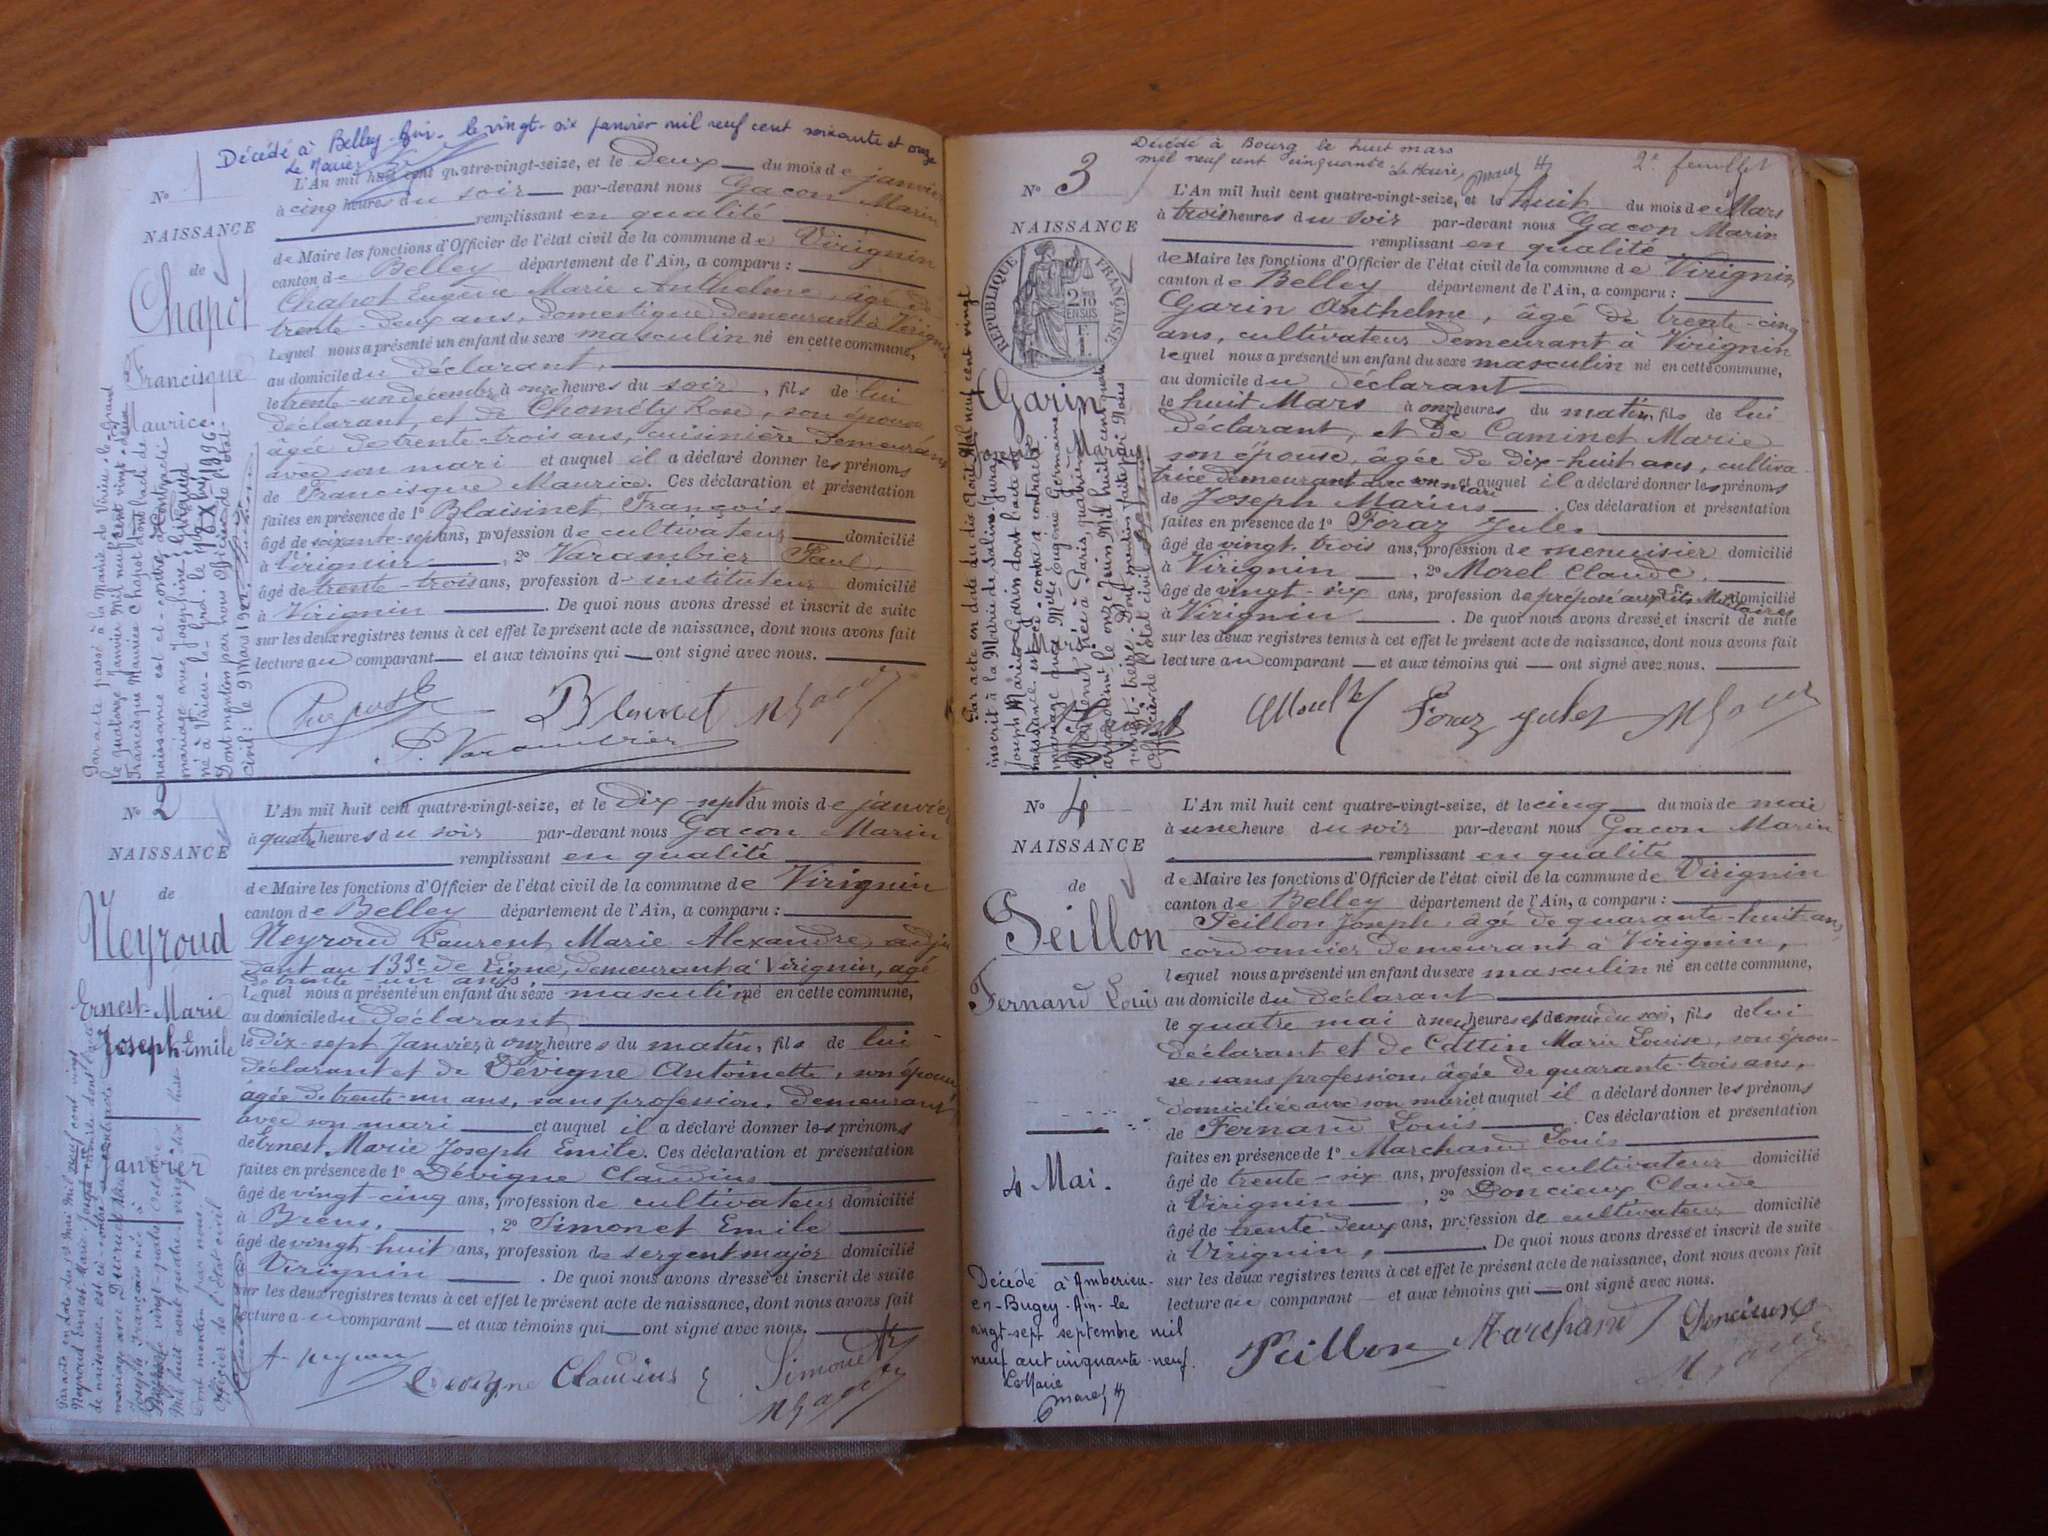 Décédé à Belley - Ain - le vingt-six janvier mil neuf cent soixante et onze
Le Maire
No 1
NAISSANCE
de
Chapot
Francisque
Maurice
L'An mil huit cent quatre-vingt-seize, et le deux du mois de janvier
à cinq heures du soir par-devant nous Gacon Marin
remplissant en qualité
de Maire les fonctions d'Officier de l'état civil de la commune de Virignin
canton de Belley département de l'Ain, a comparu :
Chapot Eugène Marie Anthelme, âgé de
trente-deux ans, domestique demeurant à Virignin
Lequel nous a présenté un enfant du sexe masculin né en cette commune,
au domicile du déclarant,
le trente-un décembre à onze heures du soir, fils de lui
déclarant, et de Chométy Rose, son épouse
âgée de trente-trois ans, cuisinière demeurant
avec son mari et auquel il a déclaré donner les prénoms
de Francisque Maurice. Ces déclaration et présentation
faites en présence de 1° Blaisinet François
âgé de soixante-sept ans, profession de cultivateur domicilié
à Virignin, 2° Varambier Paul,
âgé de trente-trois ans, profession d'instituteur domicilié
à Virignin. De quoi nous avons dressé et inscrit de suite
sur les deux registres tenus à cet effet le présent acte de naissance, dont nous avons fait
lecture au comparant et aux témoins qui ont signé avec nous.
Par acte passé à la Mairie de Virieu-le-Grand
le quatorze Janvier Mil neuf cent vingt-deux
Francisque Maurice Chapot dont l'acte de
naissance est ci-contre a contracté
mariage avec Joséphine Giraud
né à Virieu-le-Grand. le
Dont mention par nous Officier de l'état
civil : le 9 Mars 1922.
P. Varambier
No 2
NAISSANCE
de
Neyroud
Ernest-Marie
Joseph-Emile
L'An mil huit cent quatre-vingt-seize, et le dix-sept du mois de janvier
à quatre heures du soir par-devant nous Gacon Marin
remplissant en qualité
de Maire les fonctions d'Officier de l'état civil de la commune de Virignin
canton de Belley département de l'Ain, a comparu :
Neyroud Laurent Marie Alexandre, adju
dant au 133e de ligne, demeurant à Virignin, âgé
de trente un ans,
Lequel nous a présenté un enfant du sexe masculin né en cette commune,
au domicile du déclarant
le dix-sept Janvier à onze heures du matin, fils de lui
déclarant et de Dévigne Antoinette, son épouse
âgée de trente-un ans, sans profession, demeurant
avec son mari et auquel il a déclaré donner les prénoms
de Ernest Marie Joseph Emile. Ces déclaration et présentation
faites en présence de 1° Dévigne Claudius
âgé de vingt-cinq ans, profession de cultivateur domicilié
à Brens, 2° Simonet Emile
âgé de vingt huit ans, profession de sergent major domicilié
à Virignin. De quoi nous avons dressé et inscrit de suite
sur les deux registres tenus à cet effet le présent acte de naissance, dont nous avons fait
lecture au comparant et aux témoins qui ont signé avec nous.
Devigne Claudius
Simonet
Décédé à Bourg le huit mars
mil neuf cent cinquante Le Maire,
2e feuillet
No 3
NAISSANCE
RÉPUBLIQUE FRANÇAISE
Garin
Joseph Marius
L'An mil huit cent quatre-vingt-seize, et le huit du mois de Mars
à trois heures du soir par-devant nous Gacon Marin
remplissant en qualité
de Maire les fonctions d'Officier de l'état civil de la commune de Virignin
canton de Belley département de l'Ain, a comparu :
Garin Anthelme, âgé de trente-cinq
ans, cultivateur demeurant à Virignin
lequel nous a présenté un enfant du sexe masculin né en cette commune,
au domicile du déclarant
le huit Mars à onze heures du matin, fils de lui
déclarant, et de Caminet Marie
son épouse, âgée de dix-huit ans, cultiva-
trice demeurant avec son mari et auquel il a déclaré donner les prénoms
de Joseph Marius. Ces déclaration et présentation
faites en présence de 1° Foraz Jules
âgé de vingt trois ans, profession de menuisier domicilié
à Virignin, 2° Morel Claude,
âgé de vingt-six ans, profession de préposé aux lits Militaires domicilié
à Virignin. De quoi nous avons dressé et inscrit de suite
sur les deux registres tenus à cet effet le présent acte de naissance, dont nous avons fait
lecture au comparant et aux témoins qui ont signé avec nous.
Par acte en date du dix Août Mil neuf cent vingt
inscrit à la Mairie de Salins, Jura,
Joseph Marius Garin dont l'acte de
naissance est ci-contre a contracté
mariage avec Melle Eugénie Germaine
Foraz Jules
No 4
NAISSANCE
de
Peillon
Fernand Louis
4 Mai.
L'An mil huit cent quatre-vingt-seize, et le cinq du mois de mai
à une heure du soir par-devant nous Gacon Marin
remplissant en qualité
de Maire les fonctions d'Officier de l'état civil de la commune de Virignin
canton de Belley département de l'Ain, a comparu :
Peillon Joseph, âgé de quarante-huit ans,
cordonnier demeurant à Virignin,
lequel nous a présenté un enfant du sexe masculin né en cette commune,
au domicile du déclarant
le quatre mai à neuf heures et demie du soir, fils de lui
déclarant et de Cattin Marie Louise, son épou-
se, sans profession, âgée de quarante-trois ans,
domiciliée avec son mari et auquel il a déclaré donner les prénoms
de Fernand Louis. Ces déclaration et présentation
faites en présence de 1° Marchand Louis
âgé de trente-six ans, profession de cultivateur domicilié
à Virignin, 2° Doncieux Claude
âgé de trente-deux ans, profession de cultivateur domicilié
à Virignin, De quoi nous avons dressé et inscrit de suite
sur les deux registres tenus à cet effet le présent acte de naissance, dont nous avons fait
lecture au comparant et aux témoins qui ont signé avec nous.
Décédé à Amberieu-
en-Bugey-Ain-le
vingt-sept septembre mil
neuf cent cinquante-neuf.
Le Maire
Peillon Marchand Doncieux